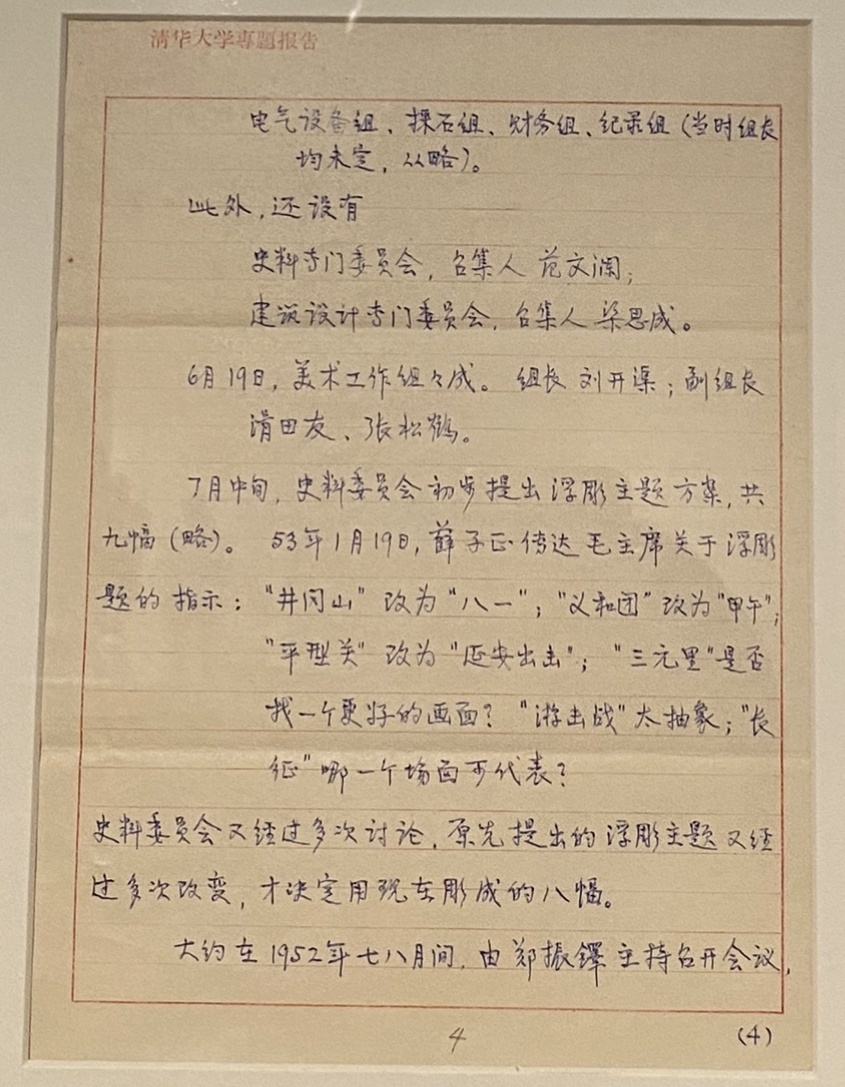 清华大学专题报告
电气设备组、採石组、财务组、纪录组（当时组长
均未定，从略）。
此外，还设有
史料专门委员会，召集人 范文澜；
建筑设计专门委员会，召集人 梁思成。
6月19日，美术工作组々成。 组长 刘开渠；副组长
滑田友、张松鹤。
7月中旬，史料委员会初步提出浮彫主题方案，共
九幅（略）。 53年1月19日，薛子正传达毛主席关于浮彫
题的指示："井冈山"改为"八一"；"义和团"改为"甲午"；
"平型关"改为"延安出击"；"三元里"是否
找一个更好的画面？"游击战"太抽象；"长
征"哪一个场面可代表？
史料委员会又经过多次讨论，原先提出的浮彫主题又经
过多次改变，才决定用现在彫成的八幅。
大约在1952年七八月间，由郑振铎主持召开会议，
4
(4)